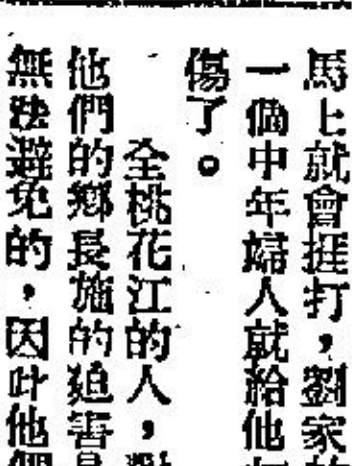 馬上就會捱打，劉家的
一個中年婦人就給他打
傷了。
全桃花江的人，對
他們的鄉長施的迫害是
無法避免的，因此他們